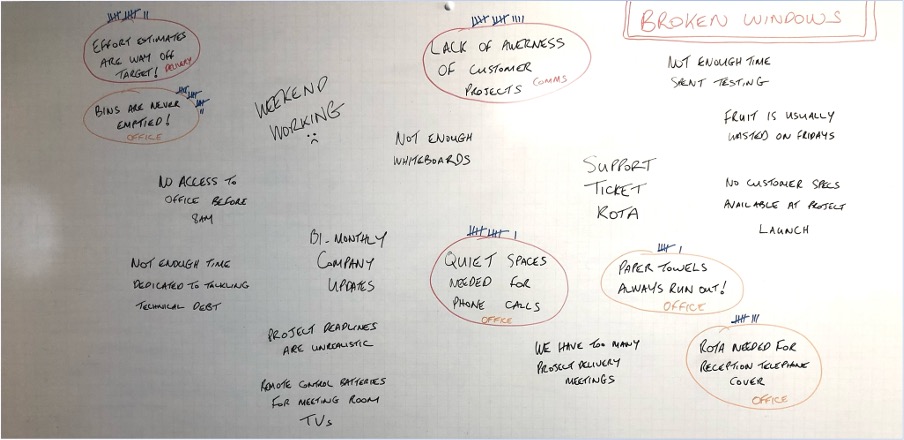 BROKEN WINDOWS
EFFORT ESTIMATES
ARE WAY OFF
TARGET! DELIVERY
BINS ARE NEVER
EMPTIED!
OFFICE
WEEKEND
WORKING
LACK OF AWERNESS
OF CUSTOMER
PROJECTS COMMS
NOT ENOUGH TIME
SPENT TESTING
FRUIT IS USUALLY
WASTED ON FRIDAYS
NOT ENOUGH
WHITEBOARDS
NO ACCESS TO
OFFICE BEFORE
8AM
SUPPORT
TICKET
ROTA
NO CUSTOMER SPECS
AVAILABLE AT PROJECT
LAUNCH
NOT ENOUGH TIME
DEDICATED TO TACKLING
TECHNICAL DEBT
BI-MONTHLY
COMPANY
UPDATES
QUIET SPACES
NEEDED FOR
PHONE CALLS
OFFICE
PAPER TOWELS
ALWAYS RUN OUT!
OFFICE
PROJECT DEADLINES
ARE UNREALISTIC
WE HAVE TOO MANY
PROJECT DELIVERY
MEETINGS
ROTA NEEDED FOR
RECEPTION TELEPHONE
COVER
OFFICE
REMOTE CONTROL BATTERIES
FOR MEETING ROOM
TVs